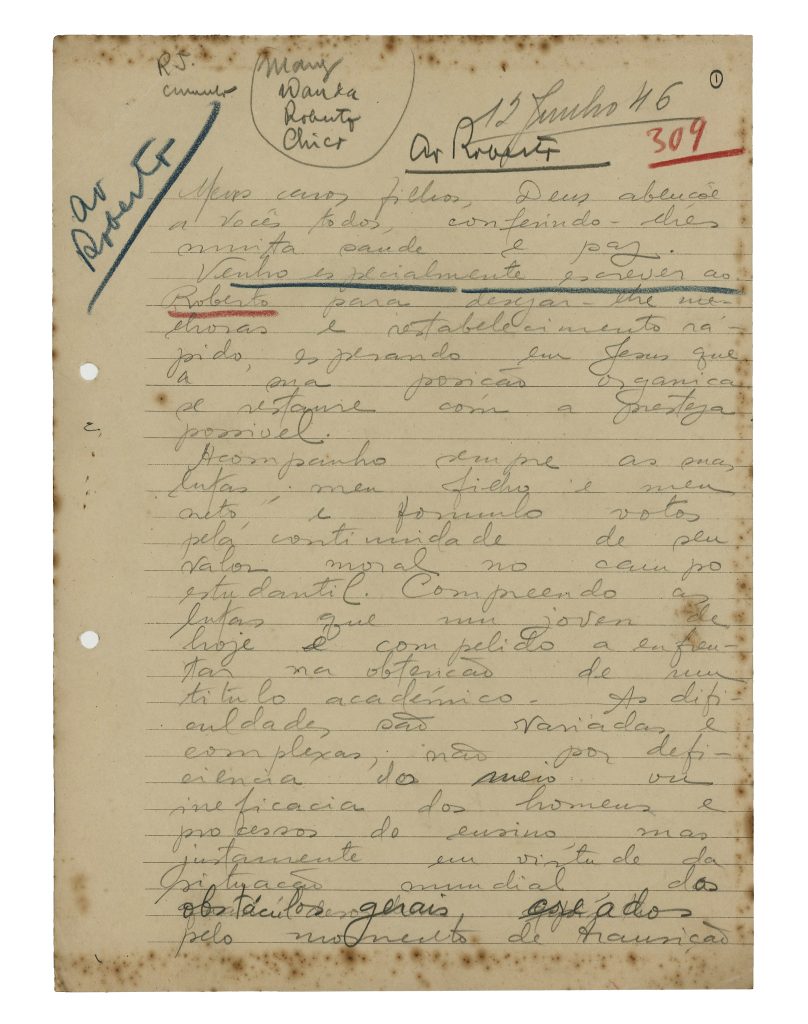 R5.
Wanda
Roberto
Chico
①
12 Junho 46
Ao Roberto
309
Ao Roberto
Meus caros filhos, Deus abençôe
a vocês todos, conferindo-lhes
muita saude e paz.
Venho especialmente escrever ao
Roberto para desejar-lhe me-
lhoras e restabelecimento rá-
pido, esperando em Jesus que
a sua posição organica
se restaure com a presteza
possivel.
Acompanho sempre as suas
lutas, meu filho e meu
neto, e formulo votos
pela continuidade de seu
valor moral no campo
estudantil. Compreendo as
lutas que um joven de
hoje é compelido a enfren-
tar na obtenção de um
titulo académico. As difi-
culdades são variadas e
complexas, não por defi-
ciência do meio ou
ineficacia dos homens e
processos do ensino mas
justamente em virtude da
situação mundial, dos
obstáculos gerais, creados
pelo momento de transição